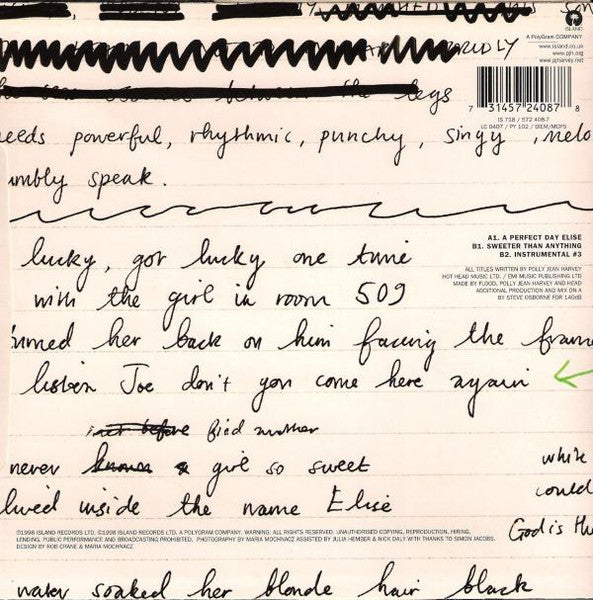 RIDLY
ISLAND
A PolyGram COMPANY
www.island.co.uk
www.pjh.org
pjharvey.net
the legs
7 31457 24087 8
IS 718 / 572 408-7
LC 0407 / PY 102 / BIEM/MCPS
eeds powerful, rhythmic, punchy, singy, melo
umbly speak.
lucky, got lucky one time
with the girl in room 509
urned her back on him facing the frame
listen Joe don't you come here again
A1. A PERFECT DAY ELISE
B1. SWEETER THAN ANYTHING
B2. INSTRUMENTAL #3
ALL TITLES WRITTEN BY POLLY JEAN HARVEY
HOT HEAD MUSIC LTD. / EMI MUSIC PUBLISHING LTD
MADE BY FLOOD, POLLY JEAN HARVEY AND HEAD
ADDITIONAL PRODUCTION AND MIX ON A
BY STEVE OSBORNE FOR 140dB
not before find another
never known a girl so sweet
lived inside the name Elise
white
could
God is the
©1998 ISLAND RECORDS LTD. ℗1998 ISLAND RECORDS LTD. A POLYGRAM COMPANY, WARNING: ALL RIGHTS RESERVED. UNAUTHORISED COPYING, REPRODUCTION, HIRING,
LENDING. PUBLIC PERFORMANCE AND BROADCASTING PROHIBITED. PHOTOGRAPHY BY MARIA MOCHNACZ ASSISTED BY JULIA HEMBER & NICK DALY WITH THANKS TO SIMON JACOBS.
DESIGN BY ROB CRANE & MARIA MOCHNACZ
water soaked her blonde hair black